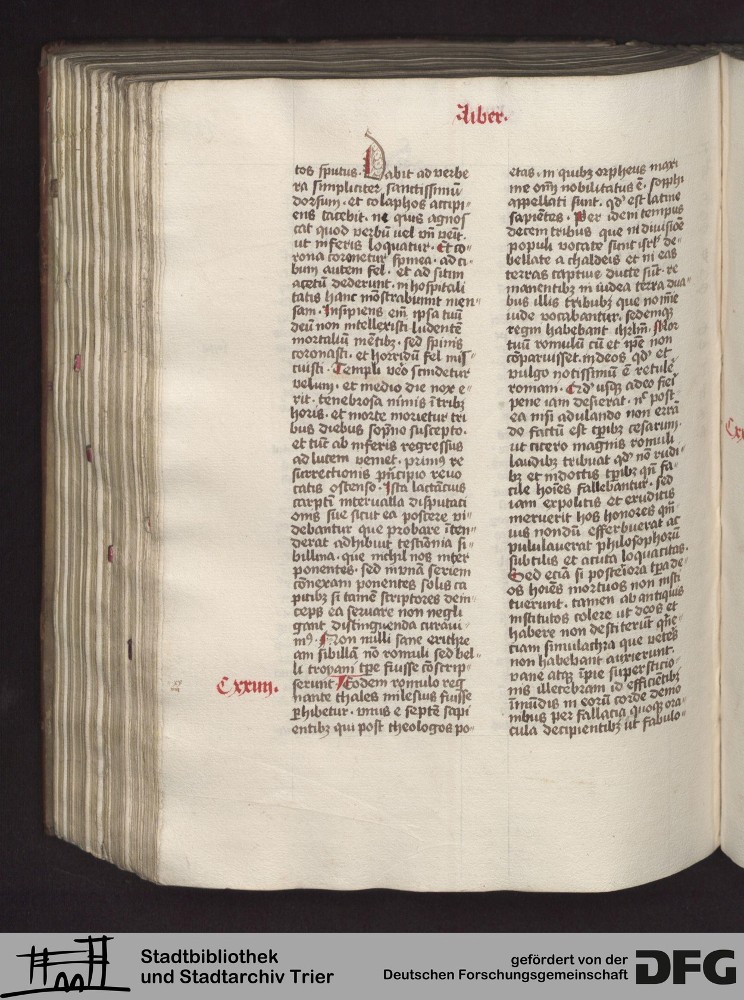 Liber.
tos sputus. Dabit ad verbe
ra simpliciter sanctissimū
dorsum. et colaphos accipi
ens tacebit. ne quis agnos
cat quod verbū vel vn̄ venit.
ut inferis loquatur. Et co
rona coronetur spinea. ad ci
bum autem fel. et ad sitim
acetū dederunt. inhospitali
tatis hanc mōstrabunt men
sam. Insipiens em̄ ipsa tuū
deū non intellexisti ludentē
mortalium mētibz. sed spinis
coronasti. et horridū fel mis
cuisti. Templi vēo scindetur
velum. et medio die nox e
rit. tenebrosa nimis ītribz
horis. et morte morietur tri
bus diebus sopno suscepto.
et tūc ab inferis regressus
ad lucem veniet. primus re
surrectionis pncipio revo
catis ostenso. Ista lactācius
carptī intervalla disputati
onis sue sicut ea poscere vi
debantur que probare īten
derat adhibuit testīonia si
billina. que nichil nos inter
ponentes. sed in vna seriem
cōnexam ponentes solis ca
pitibz si tamē scriptores dein
ceps ea servare non negli
gant distinguenda curavi
mꝰ. Non nulli sane erithre
am sibillā nō romuli sed bel
li troyani tpe fuisse cōscrip
serunt. Eodem romulo reg
nante thales milesius fuisse
phibetur. vnus e septē sapi
entibz qui post theologos po
Cxxiiii.
etas. in quibz orpheus maxi
me oīm nobilitatus ē. sopphi
appellati sunt. qd' est latine
sapiētes. Per idem tempus
decem tribus que in divisiōe
populi vocate sunt isrl' de
bellate a chaldeis et in eas
terras captiue ducte sūt. re
manentibz in iudea terra dua
bus illis tribubz que noīe
iude vocabantur. sedemqz
regni habebant ihrlm̄. Mor
tuū romulū cū et ipse non
cōparuisset. in deos qd' et
vulgo notissimū ē retule
romani. Qd' usqz adeo fieri
pene iam desierat. nc̄ post
ea nisi adulando non erra
do factū est tpibz cesarum.
ut cicero magnis romuli
laudibz tribuat qd' nō rudi
bz et indoctis tpibz qn̄ fa
cile hoīes fallebantur. sed
iam expolitis et eruditis
meruerit hos honores qm̄
ius nondū efferbuerat ac
pululaverat philosophorū
subtilis et acuta loquacitas.
Sed eciā si posteriora tpa de
os hoīes mortuos non insti
tuerunt. tamen ab antiquis
institutos colere ut deos et
habere non destiterūt. qn̄e
tiam simulachra que vetēs
non habebant auxerunt.
vane atqz īpie supersticio
nis illecebram id efficiētibz
īmūdis in eorū corde demo
nibus per fallacia quoqz ora
cula decipientibz ut fabulo
Stadtbibliothek
und Stadtarchiv Trier
gefördert von der
Deutschen Forschungsgemeinschaft
DFG